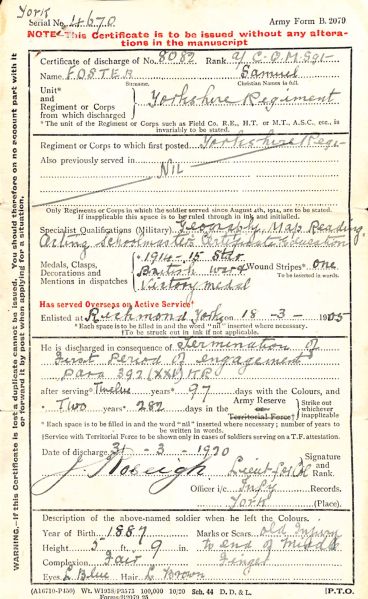 York
Serial No. 4670. Army Form B. 2079
NOTE—This Certificate is to be issued without any altera-
tions in the manuscript
Certificate of discharge of No. 8082 Rank. A/C.Q.M.Sgt
Name FOSTER Samuel
Surname. Christian Names in full.
Unit*
and
Regiment or Corps
from which discharged
Yorkshire Regiment
*The unit of the Regiment or Corps such as Field Co. R.E., H.T. or M.T., A.S.C., etc., is
invariably to be stated.
Regiment or Corps to which first posted Yorkshire Regt
Also previously served in
Nil
Only Regiments or Corps in which the soldier served since August 4th, 1914, are to be stated.
If inapplicable this space is to be ruled through in ink and initialled.
Specialist Qualifications (Military) Geography, Map Reading
Acting Schoolmaster Certificate Education
Medals, Clasps,
Decorations and
Mentions in dispatches
1914-15 Star
British War
Victory Medal
Wound Stripes* one
To be inserted in words.
Has served Overseas on Active Service†
Enlisted at Richmond Yorks on 18-3-1905
*Each space is to be filled in and the word "nil" inserted where necessary.
†To be struck out in ink if not applicable.
He is discharged in consequence of termination of
First Period of engagement
Para 392 (XXI) KR
after serving* Twelve years* 97 days with the Colours, and
Two years* 282 days in the Army Reserve
or
Territorial Force‡
Strike out
whichever
inapplicable
*Each space is to be filled in and the word "nil" inserted where necessary; number of years to
be written in words.
‡Service with Territorial Force to be shown only in cases of soldiers serving on a T.F. attestation.
Date of discharge 31-3-1920
Signature
and
Rank.
Officer i/c. Infy Records.
York (Place).
Description of the above-named soldier when he left the Colours.
Year of Birth 1887 Marks or Scars. old Injury
Height 5 ft. 9 in. to end of Middle
Complexion Fair Finger
Eyes L. Blue Hair L. Brown
(A16710-P450) Wt. W1958/P3573 100,000 10/20 Sch. 44 D. D. & L.
Forms/B2079 25
[P.T.O.
WARNING.—If this Certificate is lost a duplicate cannot be issued. You should therefore on no account part with it
or forward it by post when applying for a situation.